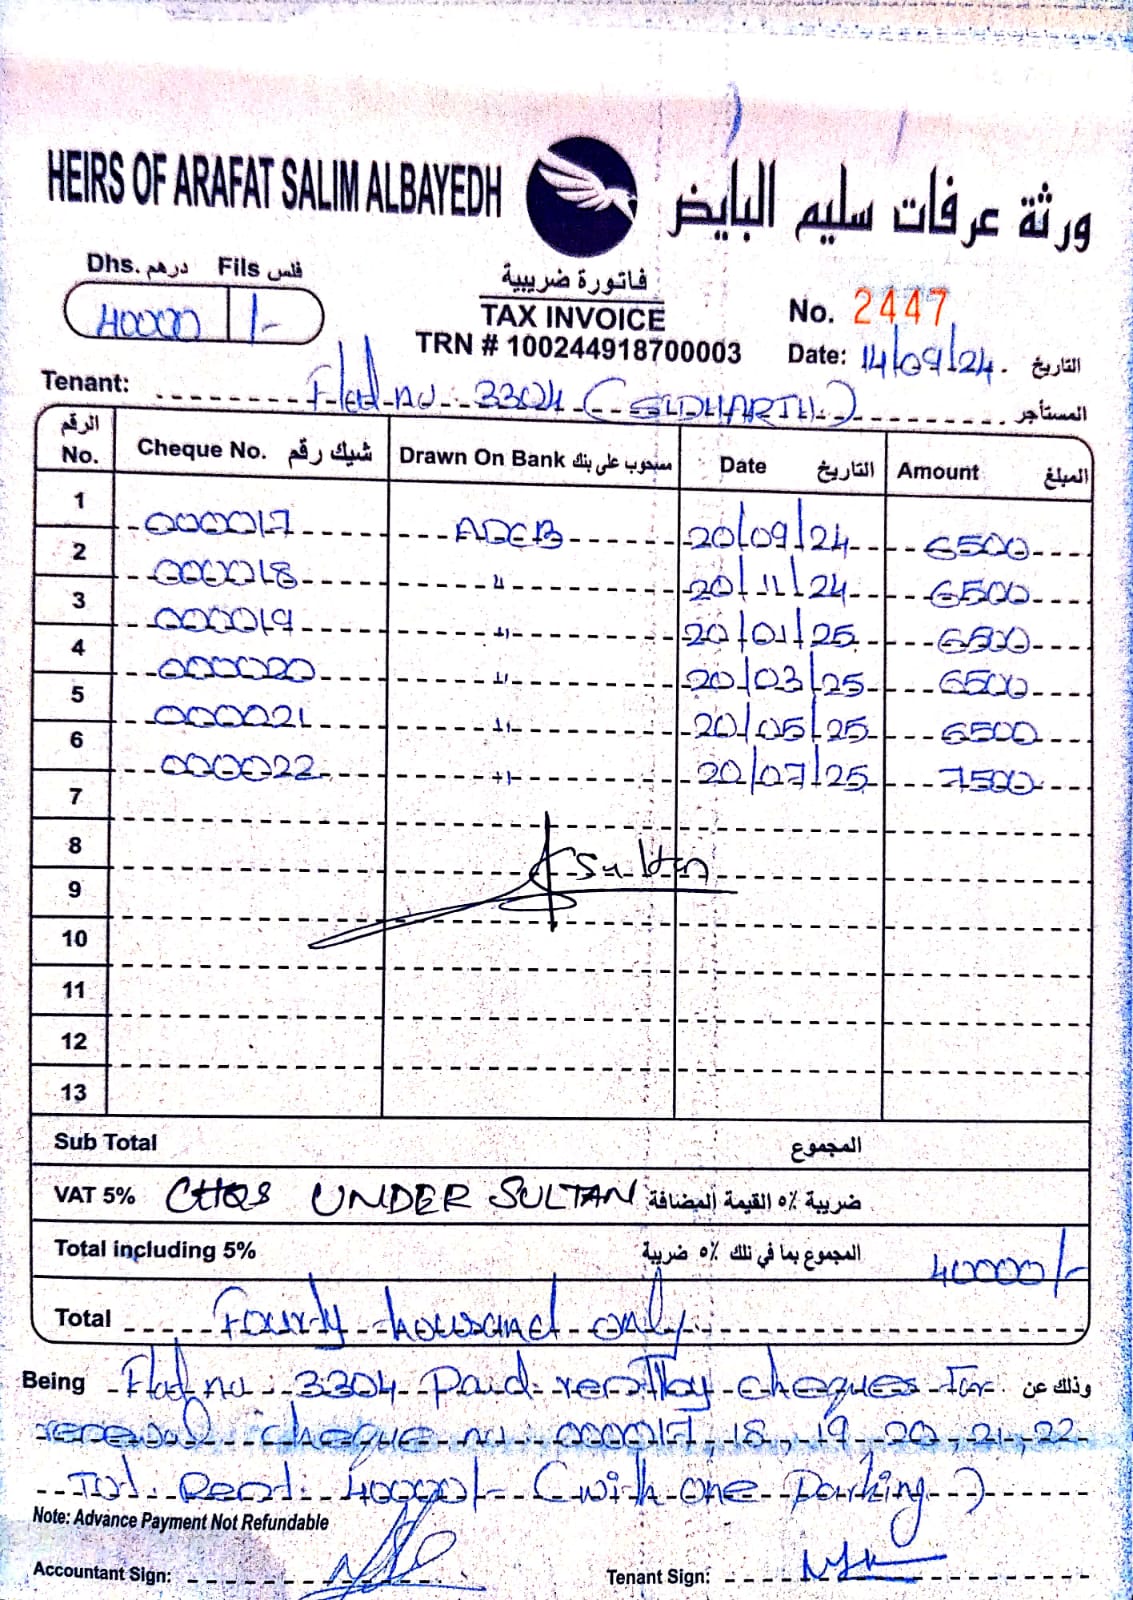 HEIRS OF ARAFAT SALIM ALBAYEDH
ورثة عرفات سليم البايض
Dhs. درهم Fils فلس
40000 /-
فاتورة ضريبية
TAX INVOICE
TRN # 100244918700003
No. 2447
Date: 14/09/24. التاريخ
Tenant: Flat no. 3304 (SIDHARTH) المستأجر
الرقم No. Cheque No. شيك رقم Drawn On Bank مسحوب على بنك Date التاريخ Amount المبلغ
1 000017 ADCB 20/09/24 6500
2 000018 " 20/11/24 6500
3 000019 " 20/01/25 6500
4 000020 " 20/03/25 6500
5 000021 " 20/05/25 6500
6 000022 " 20/07/25 7500
7
8
Sultan
9
10
11
12
13
Sub Total المجموع
VAT 5% CHQS UNDER SULTAN ضريبة ٥٪ القيمة المضافة
Total including 5% المجموع بما في ذلك ٥٪ ضريبة 40000/-
Total Fourty thousand only
Being Flat no. 3304 Paid rent by cheques for وذلك عن
renewal cheque no: 000017, 18, 19 20, 21, 22
Tot. Rent. 40000/- (with one Parking)
Note: Advance Payment Not Refundable
Accountant Sign:
Tenant Sign: